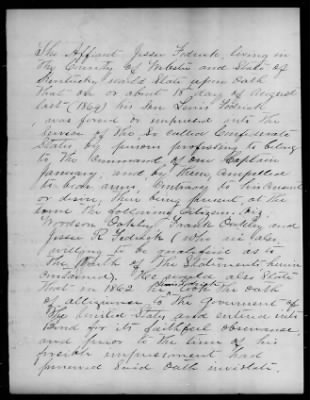 The Affiant Jesser Fedrick, living in
the County of Webster and State of
Kentucky would State upon Oath
that on or about 18 day of August
last (1864) his Son Lewis Fedrick
was forced or impressed into the
service of the So called Confederate
States by persons professing to belong
to the Command of one Captain
January, and by them, compelled
to bear arms, Contrary to his Consent
or desire, their being present, at the
same the following Citizens. Viz,
Woodson Oakley Frank Oakley and
Jesser R Fedrick (who is also
willing to be qualified as to
the truth of the Statements, herein
Contained). He would also State
that in 1862 he Lewis Fedrick took the Oath
of allegiance to the Goverment of
the United States and entered into
bond for its faithful observance,
and prior to the time of his
forcible impressment had
preserved Said Oath inviolate.